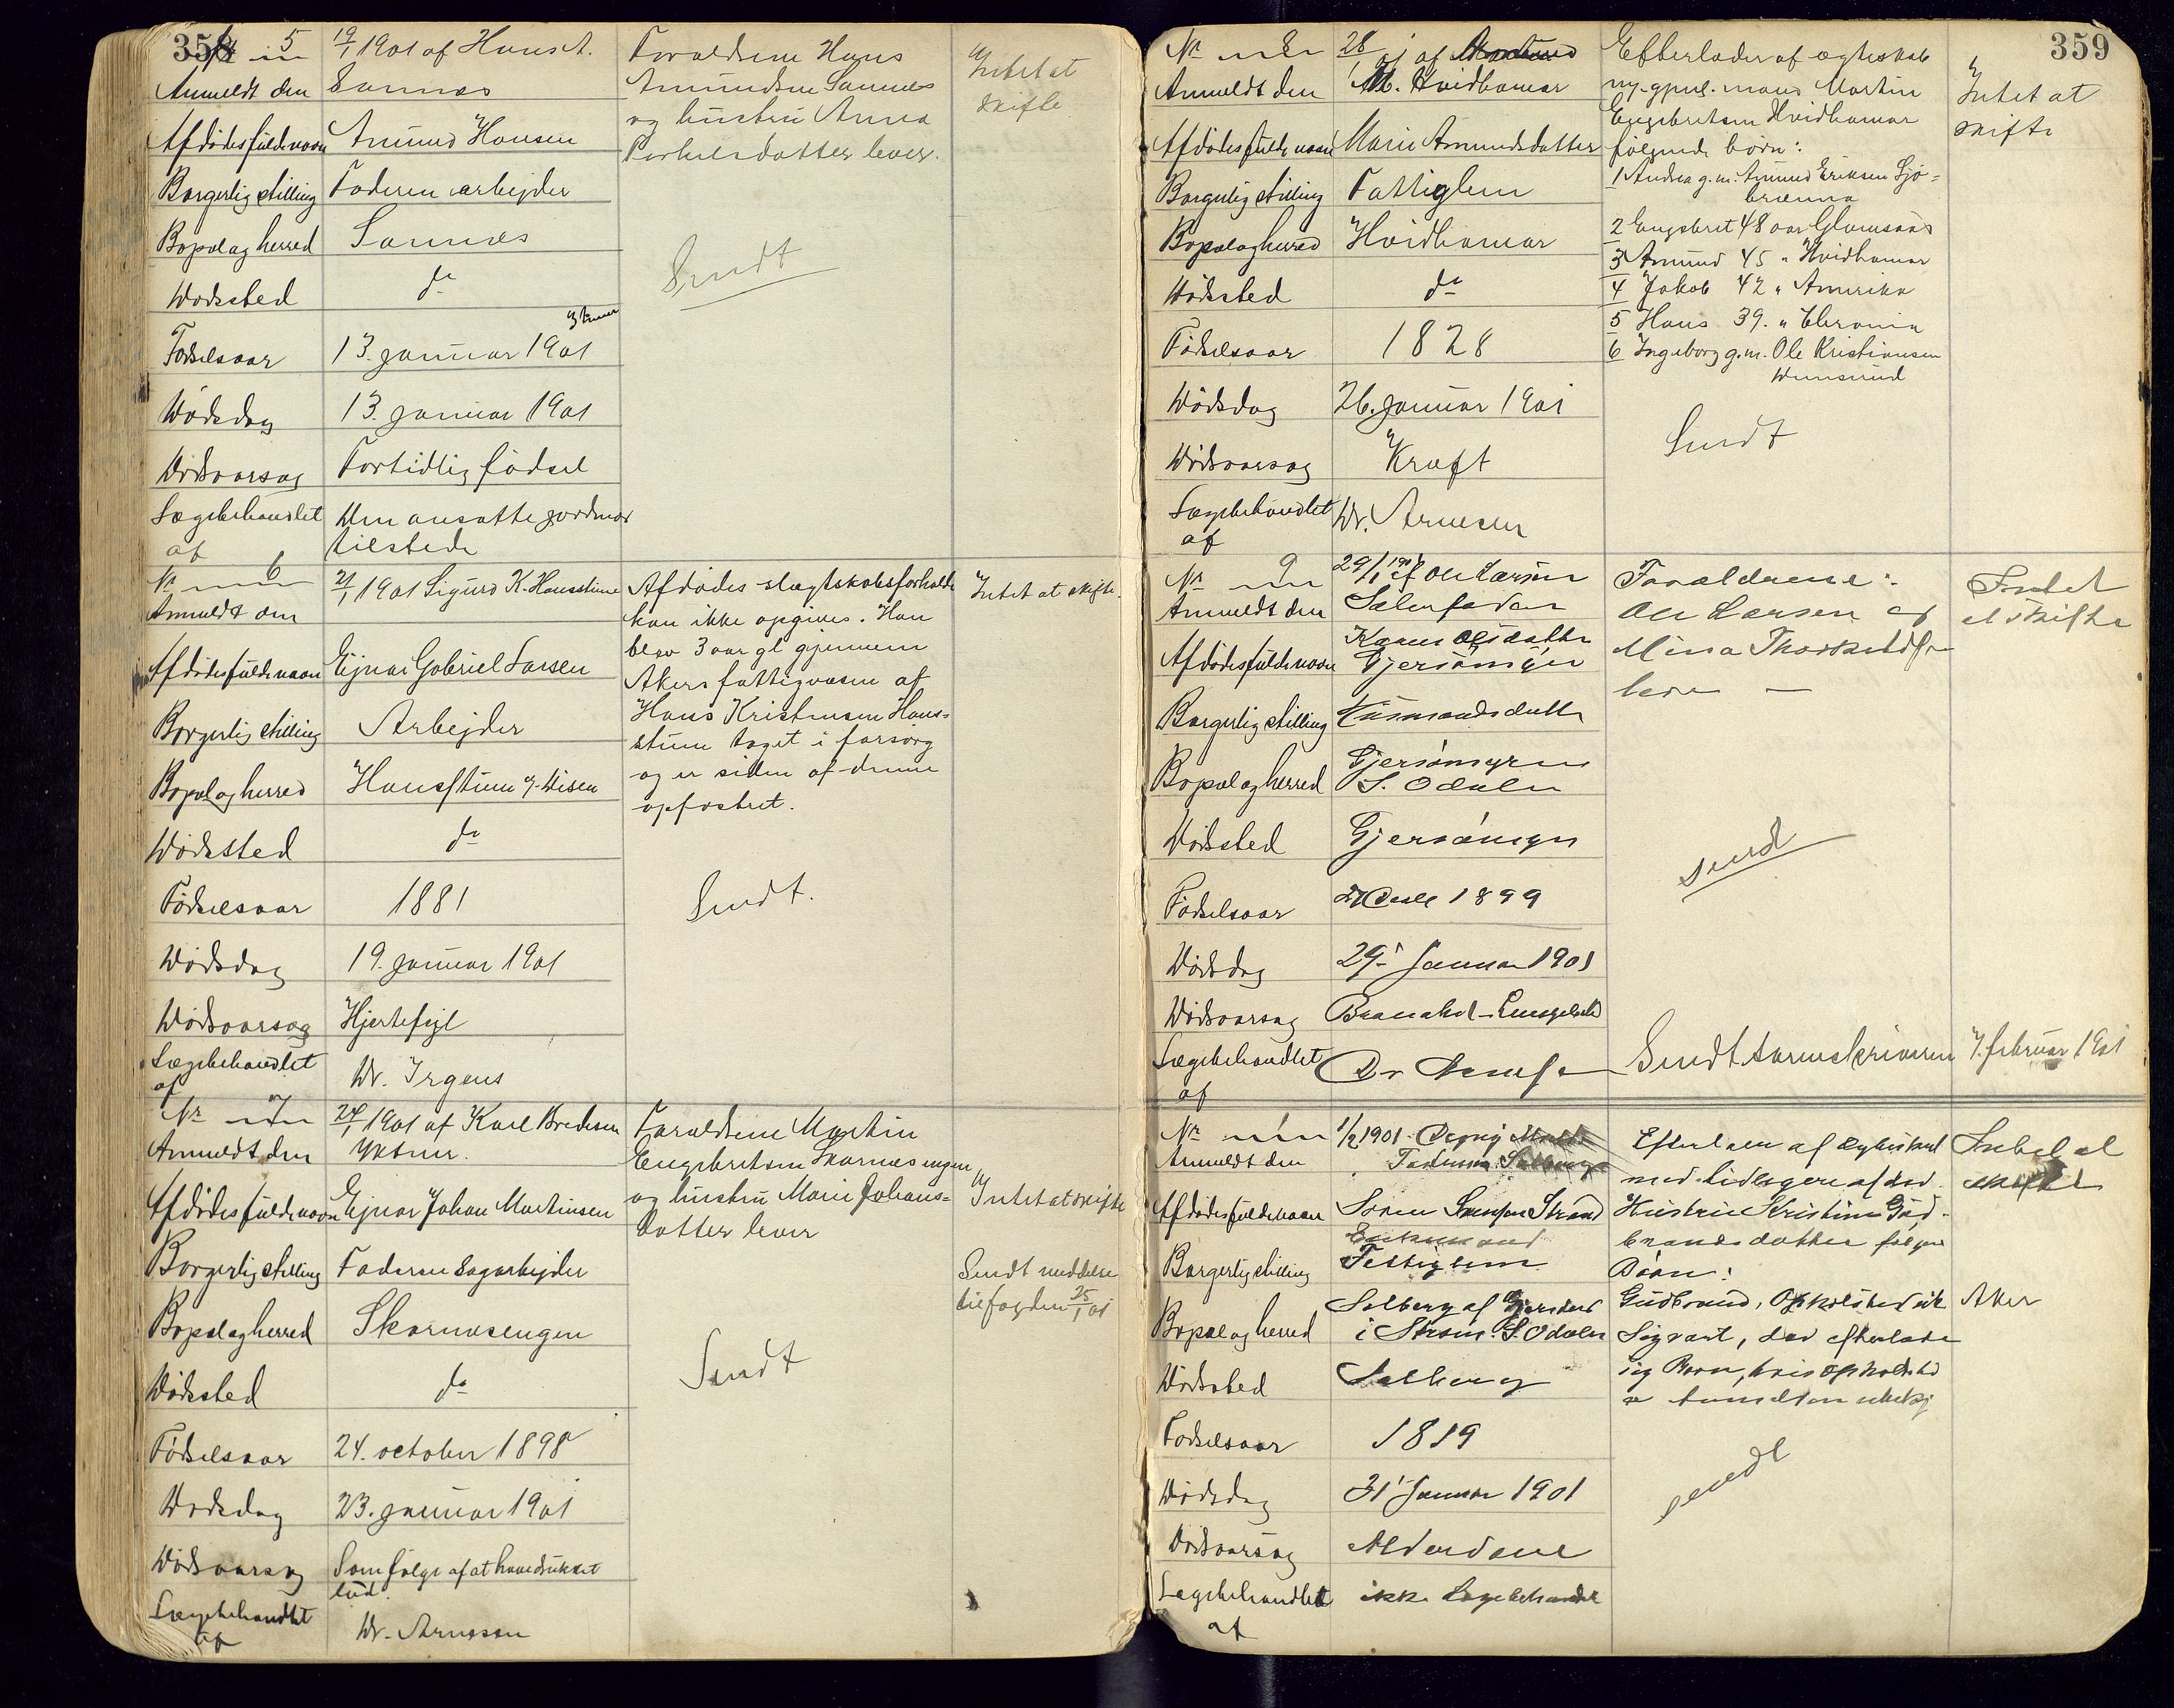 358
5
19/1 1901 af Hans A.
Anmeldt den Sannes
Afdødes fulde navn Amund Hansen
Borgerlig stilling Faderen arbejder
Bopæl og herred Sannes
Dødssted do
3 timer
Fødselsaar 13. januar 1901
Dødsdag 13. januar 1901
Dødsaarsag Fortidlig fødsel
Lægebehandlet af Den ansatte jordmor
tilstede
Forældrene Hans
Amundsen Sannes
og hustru Anna
lever.
Sendt
Intet at
skifte
Nr 6
21/1 1901 Sigurd K. Hansstuen
Anmeldt den
Afdødes fulde navn Ejnar Gabriel Larsen
Borgerlig stilling Arbejder
Bopæl og herred Hansstuen
Dødssted do
Fødselsaar 1881
Dødsdag 19. januar 1901
Dødsaarsag Hjertefejl
Lægebehandlet af Dr. Irgens
Afdødes slægtskabsforholde
kan ikke opgives. Han
blev 3 aar gl gjennem
Akers fattigvæsen af
Hans Kristensen Hans=
stuen taget i forsørg
og er siden af denne
opfostret.
Sendt.
Intet at skifte.
Nr 7
24/1 1901 af Karl Bredesen
Anmeldt den
Afdødes fulde navn Ejnar Johan Martinsen
Borgerlig stilling Faderen sagarbejder
Bopæl og herred Skarnæsengen
Dødssted do
Fødselsaar 24. october 1898
Dødsdag 23. januar 1901
Dødsaarsag Som følge af at have drukket
lud.
Lægebehandlet af Dr. Arnesen
Forældrene Martin
Engebretsen Skarnæsengen
og hustru Marie Johans=
datter lever
Sendt
Intet at skifte
Sendt meddelse
til fogden 25/1 01
359
Nr 8
28/1 01 af
Anmeldt den M. Hvidhamar
Afdødes fulde navn Marie Amundsdatter
Borgerlig stilling Fattiglem
Bopæl og herred Hvidhamar
Dødssted do
Fødselsaar 1828
Dødsdag 26. januar 1901
Dødsaarsag Kræft
Lægebehandlet af Dr. Arnesen
Efterlader af ægteskab
m. gpul. mand Martin
Engebretsen Hvidhamar
følgende børn:
1 Andrea g. m. Amund Eriksen Sjø=
brenna
2 Engebret 48 aar Glomsaas
3 Amund 45 " Hvidhamar
4 Jakob 42 " Amerika
5 Hans 39. "
6 Ingeborg g. m. Ole Kristiansen
Sendt
Intet at
skifte
Nr 9
29/1 1901 af Ole Larsen
Anmeldt den
Afdødes fulde navn Karen Olsdatter
Borgerlig stilling Husmandsdatter
Bopæl og herred
S. Odalen
Dødssted
Fødselsaar 1899
Dødsdag 29' Januar 1901
Dødsaarsag
Lægebehandlet af Dr Arnesen
Forældrene:
Ole Larsen og
Mina
lever
sendt
Intet
at skifte
Sendt sorenskriveren 7. februar 1901
Nr
1/2 1901
Anmeldt den
Afdødes fulde navn Søren
Borgerlig stilling Fattiglem
Bopæl og herred Solberg af
i Strøm. S. Odalen
Dødssted Solberg
Fødselsaar 1819
Dødsdag 31' Januar 1901
Dødsaarsag Alderdom
Lægebehandlet af ikke Lægebehandlet
Efterladen af Ægteskab
med tidligere afdød
Hustru Kristine Gud-
brandsdatter følgende
Børn:
Gudbrand, Opholdssted
Sigvart, død efterlader
sig Børn, hvis Opholdssted
sendt
Intet at
skifte
Aker